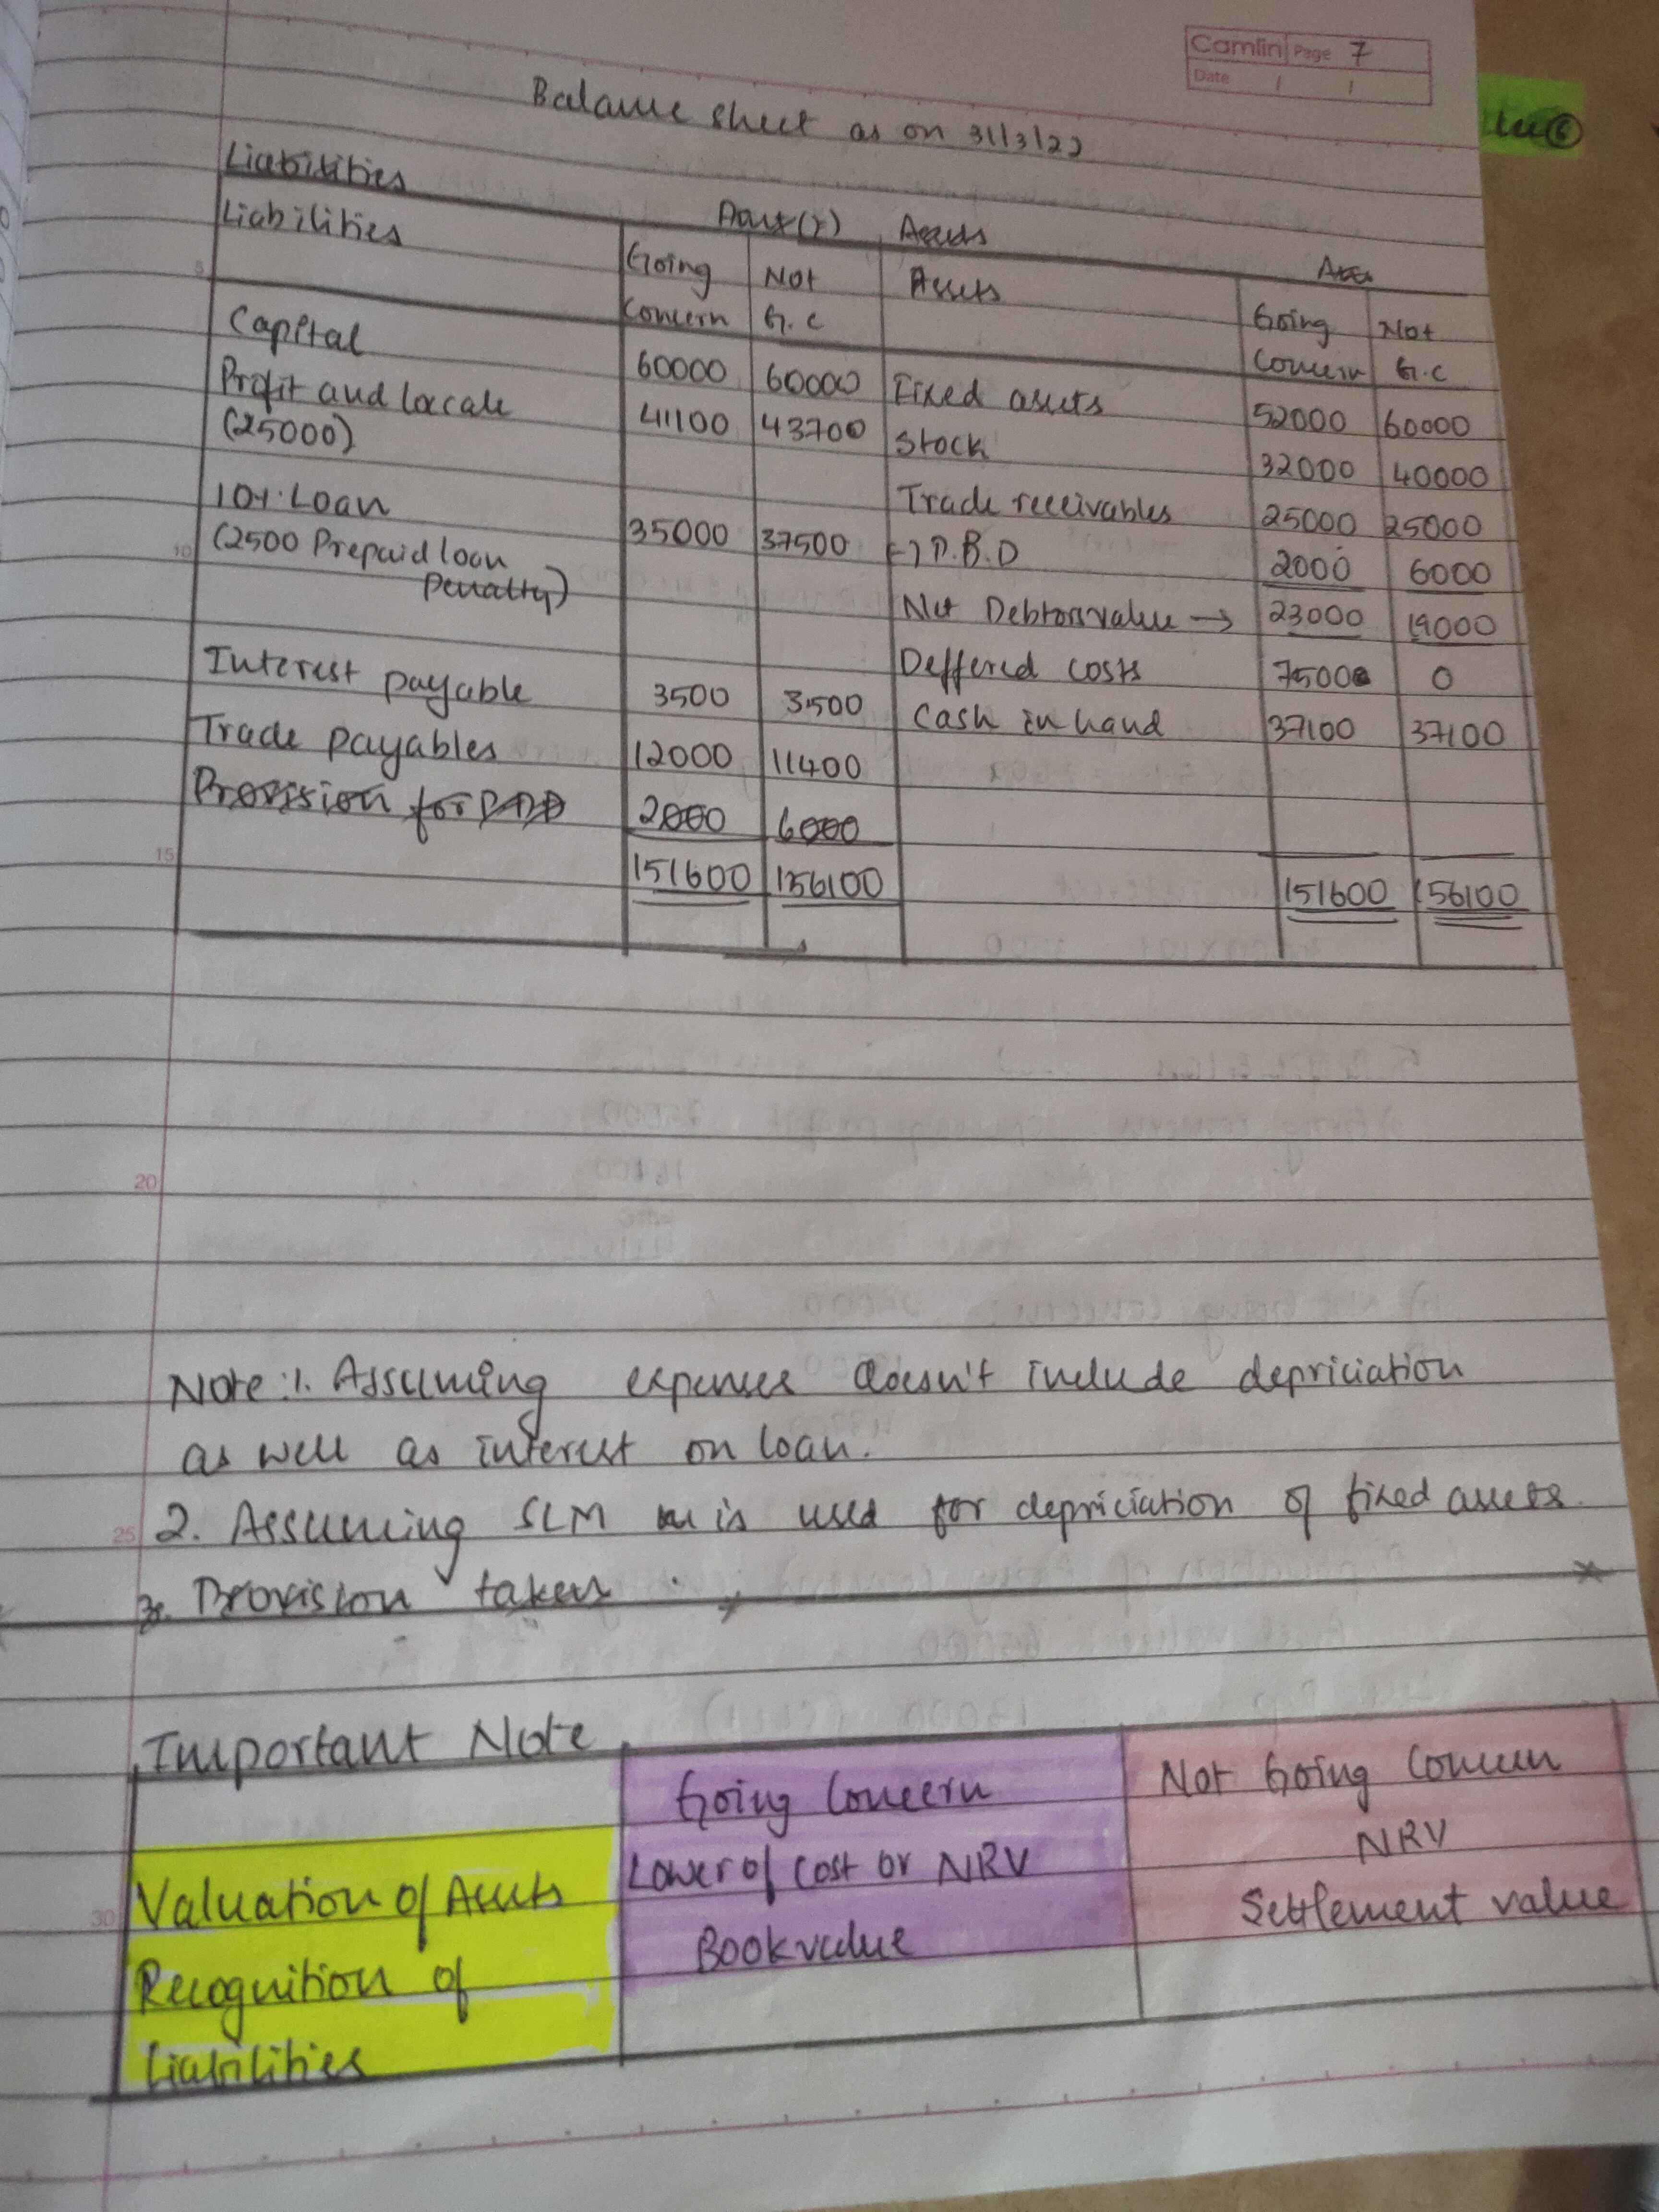 Camlin Page 7
Date / /
Balance sheet as on 31/3/22
Liabilities
Amt (₹) Assets
Liabilities Going Not Assets Going Not
Concern G.C Concern G.C
Capital 60000 60000 Fixed assets 52000 60000
Profit and loss a/c 41100 43700 Stock 32000 40000
(25000)
Trade receivables 25000 25000
10% Loan 35000 37500 (-) P.B.D 2000 6000
(2500 Prepaid loan
Penalty) Net Debtors value → 23000 19000
Deffered costs 7500 0
Interest payable 3500 3500 Cash in hand 37100 37100
Trade payables 12000 11400
Provision for 2000 6000
151600 156100 151600 156100
5
10
15
20
25
30
Note: 1. Assuming expenses doesn't include depriciation
as well as interest on loan.
2. Assuming SLM is used for depriciation of fixed assets.
3. Provision taken
Important Note
Going Concern Not Going Concern
Valuation of Assets Lower of cost or NRV NRV
Recognition of Book value Settlement value
Liabilities